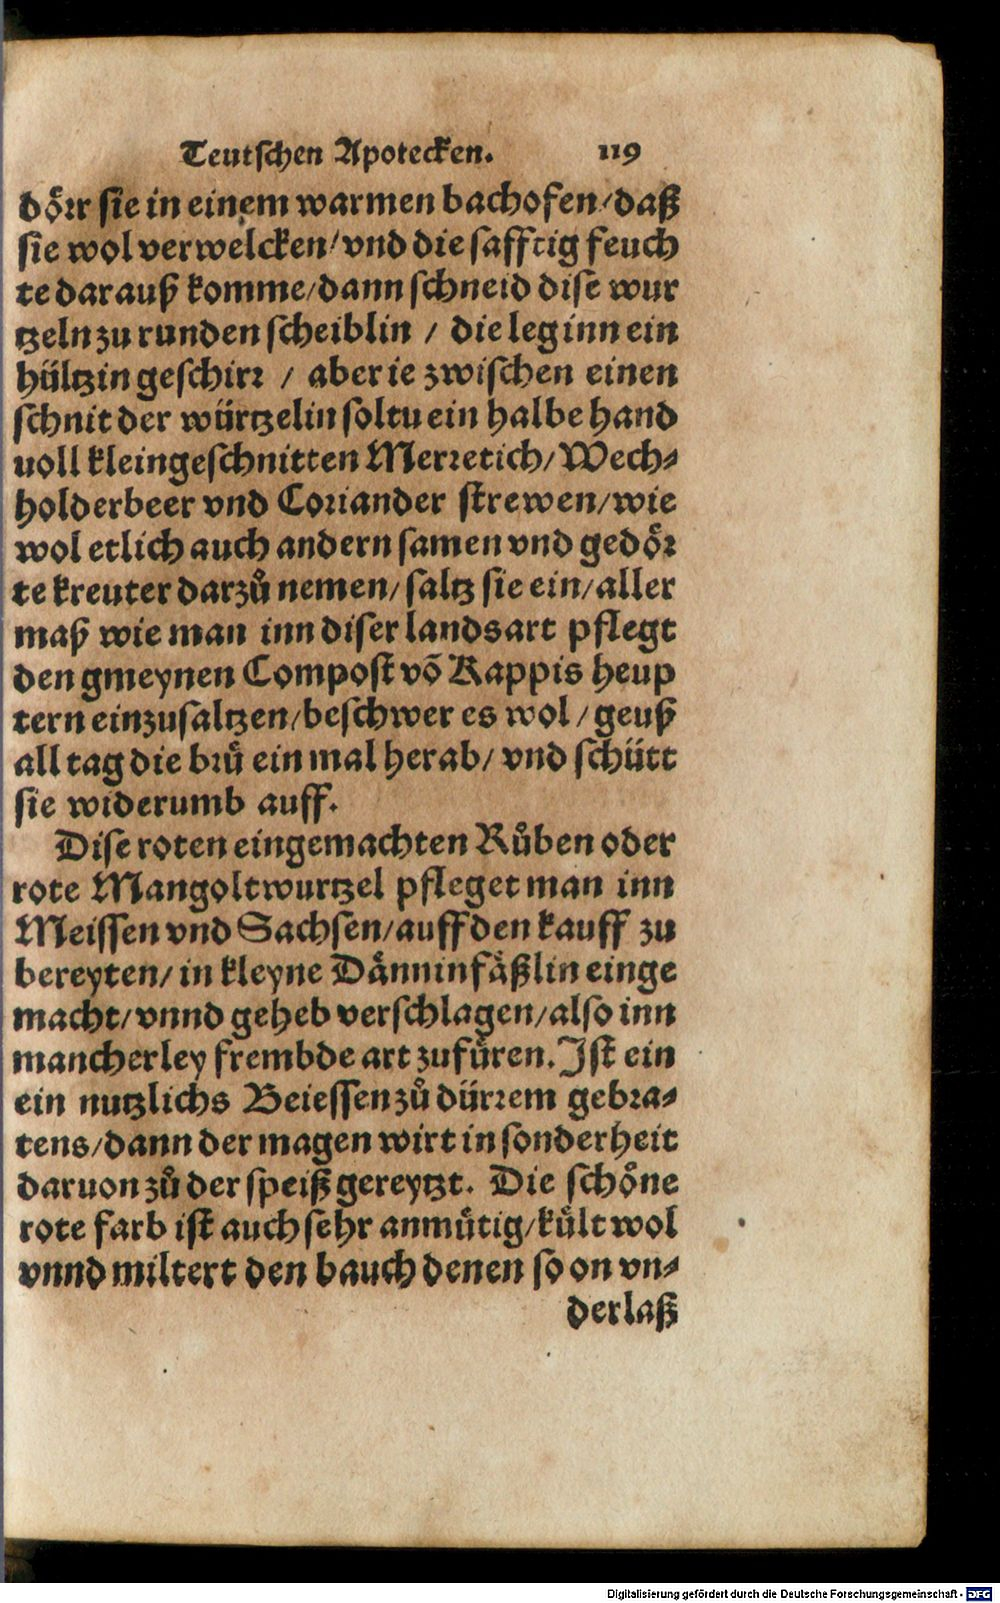 Teutschen Apotecken. 119
dörr sie in einem warmen bachofen/daß
sie wol verwelcken/vnd die safftig feuch
te darauß komme/dann schneid dise wur
tzeln zu runden scheiblin / die leg inn ein
hültzin geschirr / aber ie zwischen einen
schnit der würtzelin soltu ein halbe hand
uoll kleingeschnitten Merretich/Wech-
holderbeer vnd Coriander strewen/wie
wol etlich auch andern samen vnd gedör
te kreuter darzů nemen/saltz sie ein/aller
maß wie man inn diser landsart pflegt
den gmeynen Compost võ Kappis heup
tern einzusaltzen/beschwer es wol/geuß
all tag die brü ein mal herab/vnd schütt
sie widerumb auff.
Dise roten eingemachten Růben oder
rote Mangoltwurtzel pfleget man inn
Meissen vnd Sachsen/auff den kauff zu
bereyten/in kleyne Dänninfäßlin einge
macht/vnnd geheb verschlagen/also inn
mancherley frembde art zufüren. Ist ein
ein nutzlichs Beiessen zů dürrem gebra-
tens/dann der magen wirt in sonderheit
daruon zů der speiß gereytzt. Die schöne
rote farb ist auch sehr anmütig/kült wol
vnnd miltert den bauch denen so on vn-
derlaß
Digitalisierung gefördert durch die Deutsche Forschungsgemeinschaft - DFG